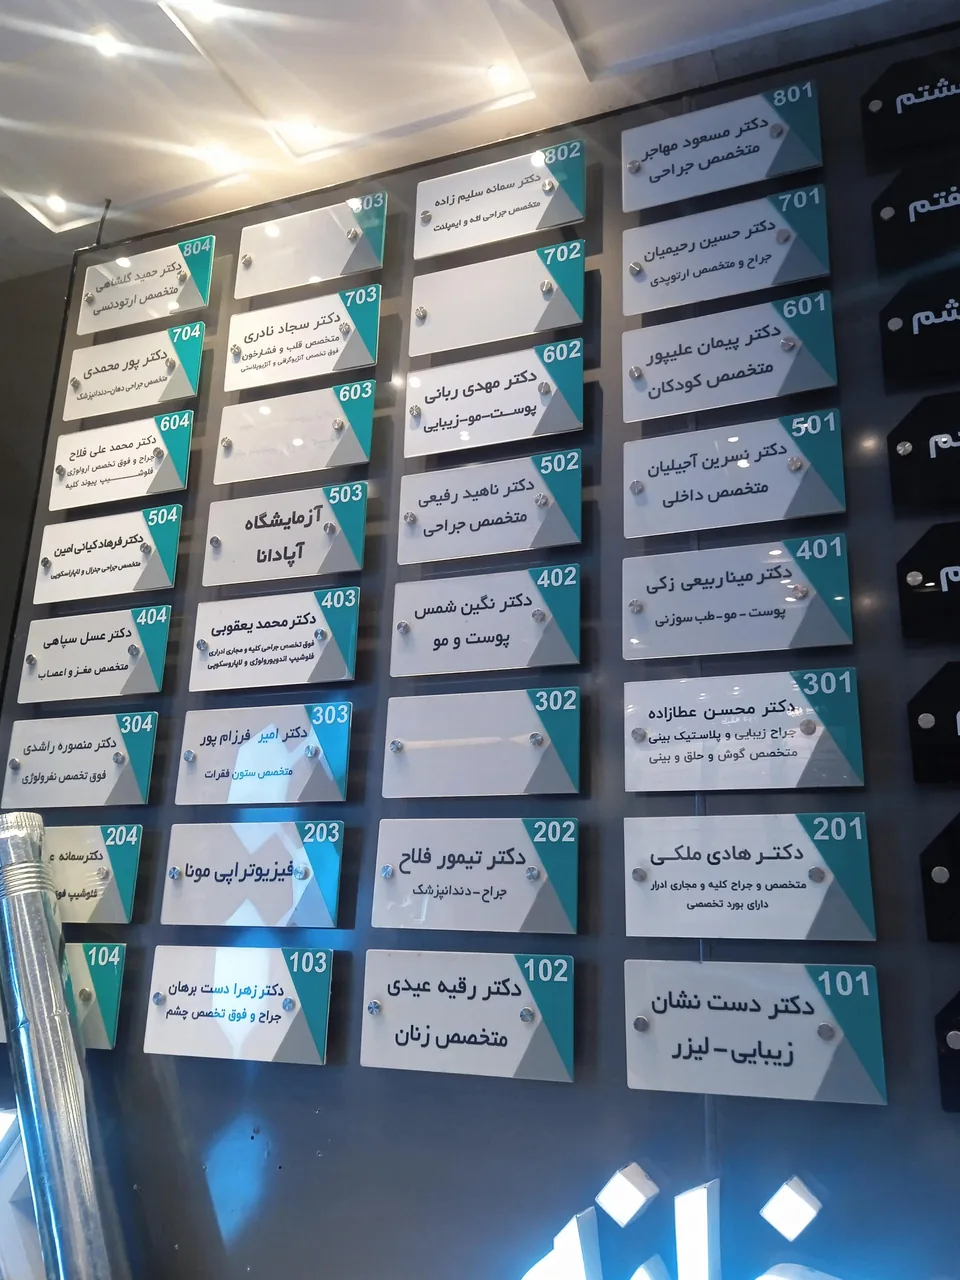 شتم
801
دکتر مسعود مهاجر
متخصص جراحی
802
دکتر سمانه سلیم زاده
متخصص جراحی لثه و ایمپلنت
803
804
دکتر حمید گلشاهی
متخصص ارتودنسی
فتم
701
دکتر حسین رحیمیان
جراح و متخصص ارتوپدی
702
703
دکتر سجاد نادری
متخصص قلب و فشارخون
فوق تخصص آنژیوگرافی و آنژیوپلاستی
704
دکتر پور محمدی
متخصص جراحی دهان-دندانپزشک
شم
601
دکتر پیمان علیپور
متخصص کودکان
602
دکتر مهدی ربانی
پوست-مو-زیبایی
603
604
دکتر محمد علی فلاح
جراح و فوق تخصص ارولوژی
فلوشیپ پیوند کلیه
501
دکتر نسرین آجیلیان
متخصص داخلی
502
دکتر ناهید رفیعی
متخصص جراحی
503
آزمایشگاه
آپادانا
504
دکتر فرهاد کیانی امین
متخصص جراحی جنرال و لاپاراسکوپی
401
دکتر مینا ربیعی زکی
پوست-مو-طب سوزنی
402
دکتر نگین شمس
پوست و مو
403
دکتر محمد یعقوبی
فوق تخصص جراحی کلیه و مجاری ادراری
فلوشیپ اندویورولوژی و لاپاروسکوپی
404
دکتر عسل سپاهی
متخصص مغز و اعصاب
301
دکتر محسن عطازاده
جراح زیبایی و پلاستیک بینی
متخصص گوش و حلق و بینی
302
303
دکتر امیر فرزام پور
متخصص ستون فقرات
304
دکتر منصوره راشدی
فوق تخصص نفرولوژی
201
دکتر هادی ملکی
متخصص و جراح کلیه و مجاری ادرار
دارای بورد تخصصی
202
دکتر تیمور فلاح
جراح-دندانپزشک
203
فیزیوتراپی مونا
204
دکتر سمانه
فلوشیپ
101
دکتر دست نشان
زیبایی-لیزر
102
دکتر رقیه عیدی
متخصص زنان
103
دکتر زهرا دست برهان
جراح و فوق تخصص چشم
104